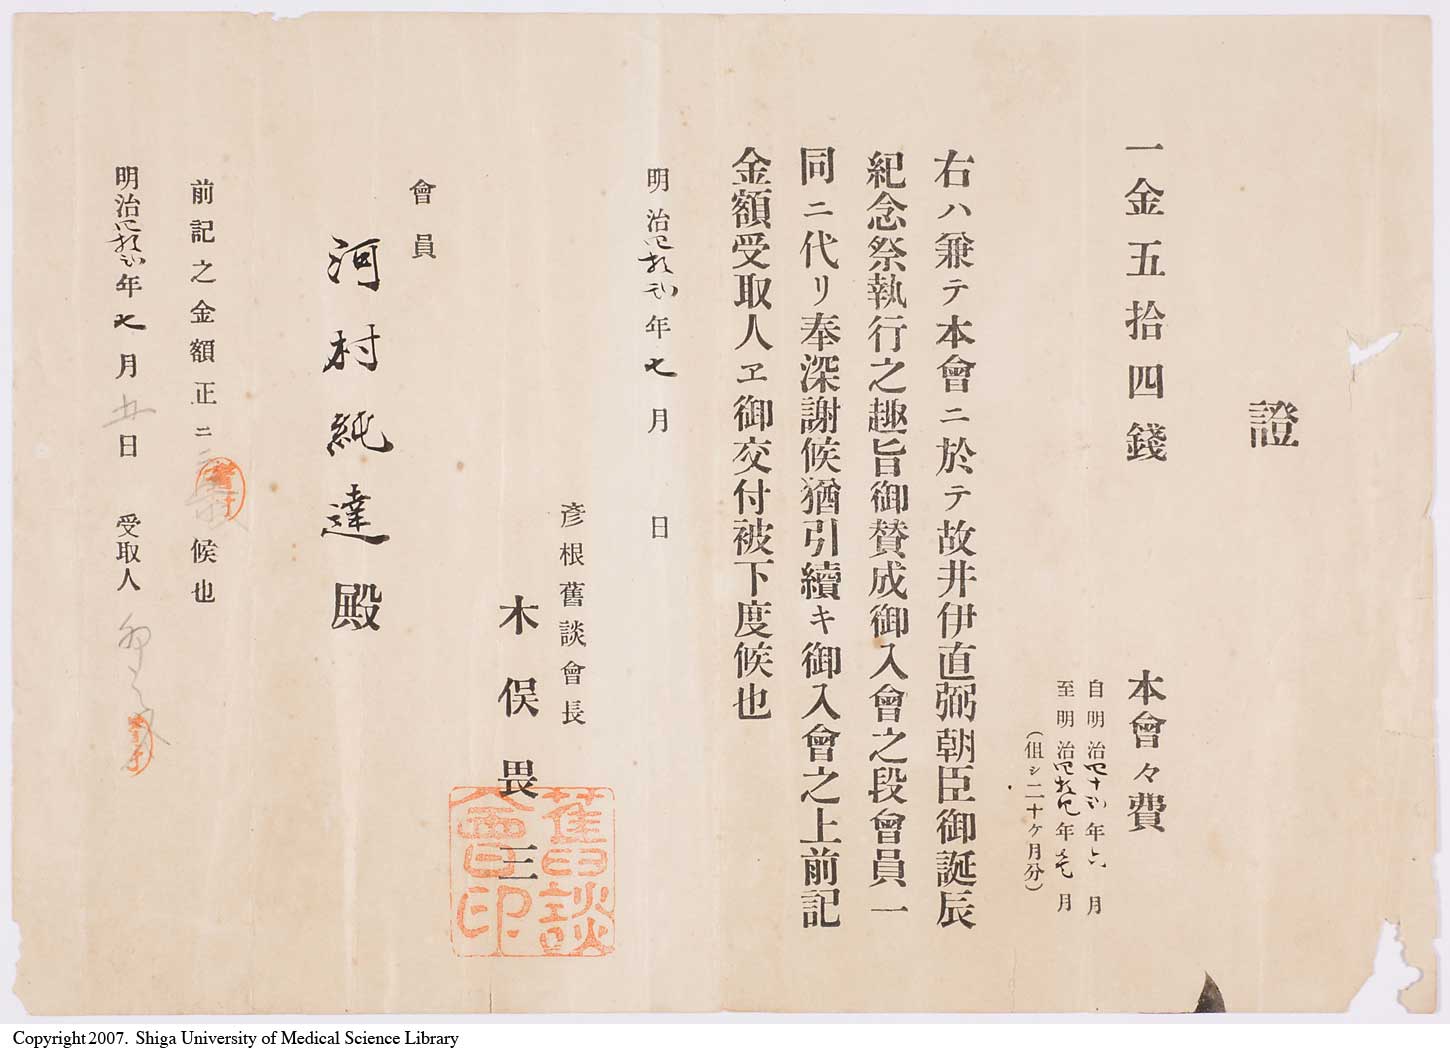 證
一金五拾四錢
本會々費
自明治四十弐年六月
至明治四拾四年壱月
(伹シ二十ケ月分)
右ハ兼テ本會ニ於テ故井伊直弼朝臣御誕辰
紀念祭執行之趣旨御賛成御入會之段會員一
同ニ代リ奉深謝候猶引續キ御入會之上前記
金額受取人ヱ御交付被下度候也
明治四拾弐年七月 日
彦根舊談會長
木俣畏三
舊談會印
會員
河村純達殿
前記之金額正ニ 候也
明治四拾弐年七月廿日 受取人
Copyright 2007. Shiga University of Medical Science Library